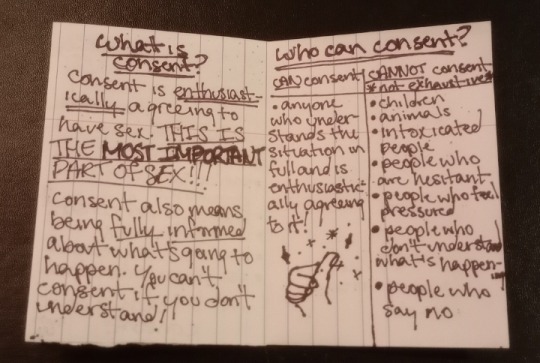 What is
consent?
Consent is enthusiast-
ically agreeing to
have sex. THIS IS
THE MOST IMPORTANT
PART OF SEX!!!
Consent also means
being fully informed
about what's going to
happen. You can't
consent if you don't
understand!
Who can consent?
CAN consent
•anyone
who under-
stands the
situation in
full and is
enthusiastic-
ally agreeing
to it!
CANNOT consent
*not exhaustive*
•children
•animals
•intoxicated
people
•people who
are hesitant
•people who feel
pressured
•people who
don't understand
what's happen-
ing
•people who
say no